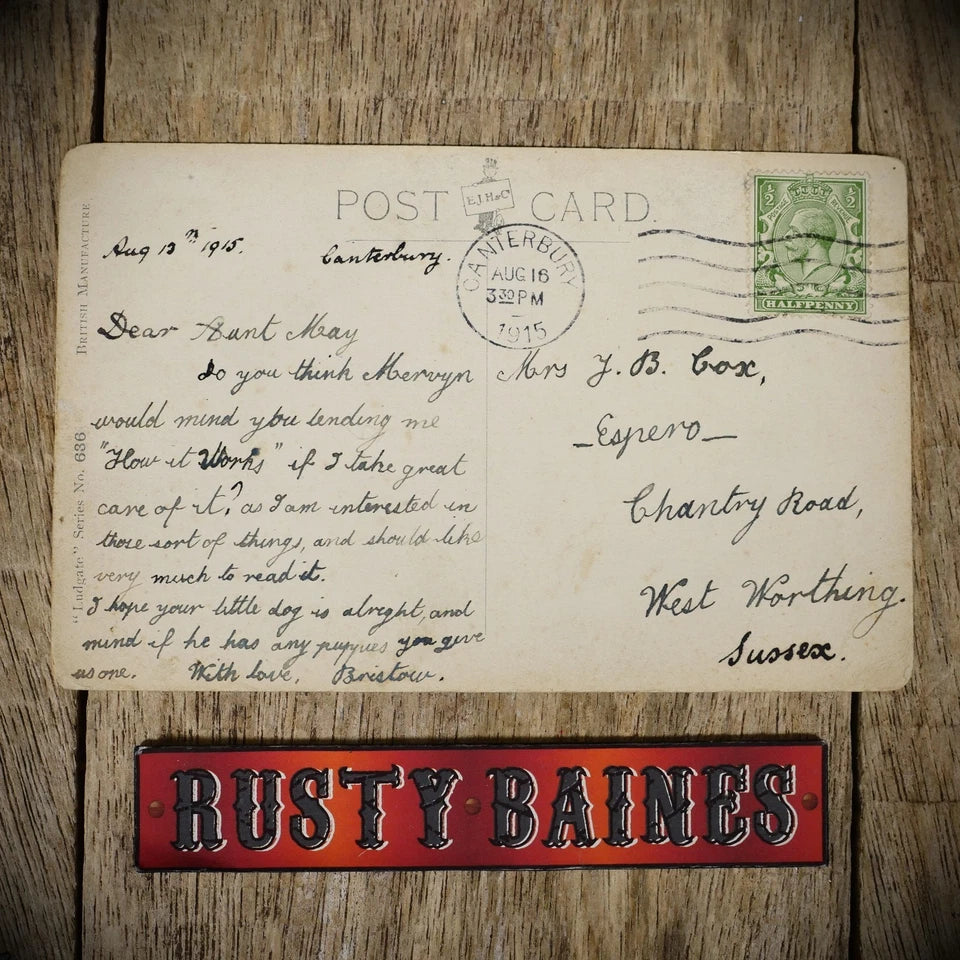 POST CARD.
E.J.H&C
BRITISH MANUFACTURE
"Ludgate" Series No. 636
Aug 13th 1915. Canterbury.
CANTERBURY
AUG 16
3 30 PM
1915
½ ½
POSTAGE REVENUE
HALFPENNY
Dear Aunt May
do you think Mervyn
would mind you lending me
"How it Works" if I take great
care of it? as I am interested in
those sort of things, and should like
very much to read it.
I hope your little dog is alright, and
mind if he has any puppies you give
us one. With love, Bristow.
Mrs J. B. Cox,
Espero
Chantry Road,
West Worthing.
Sussex.
RUSTY BAINES